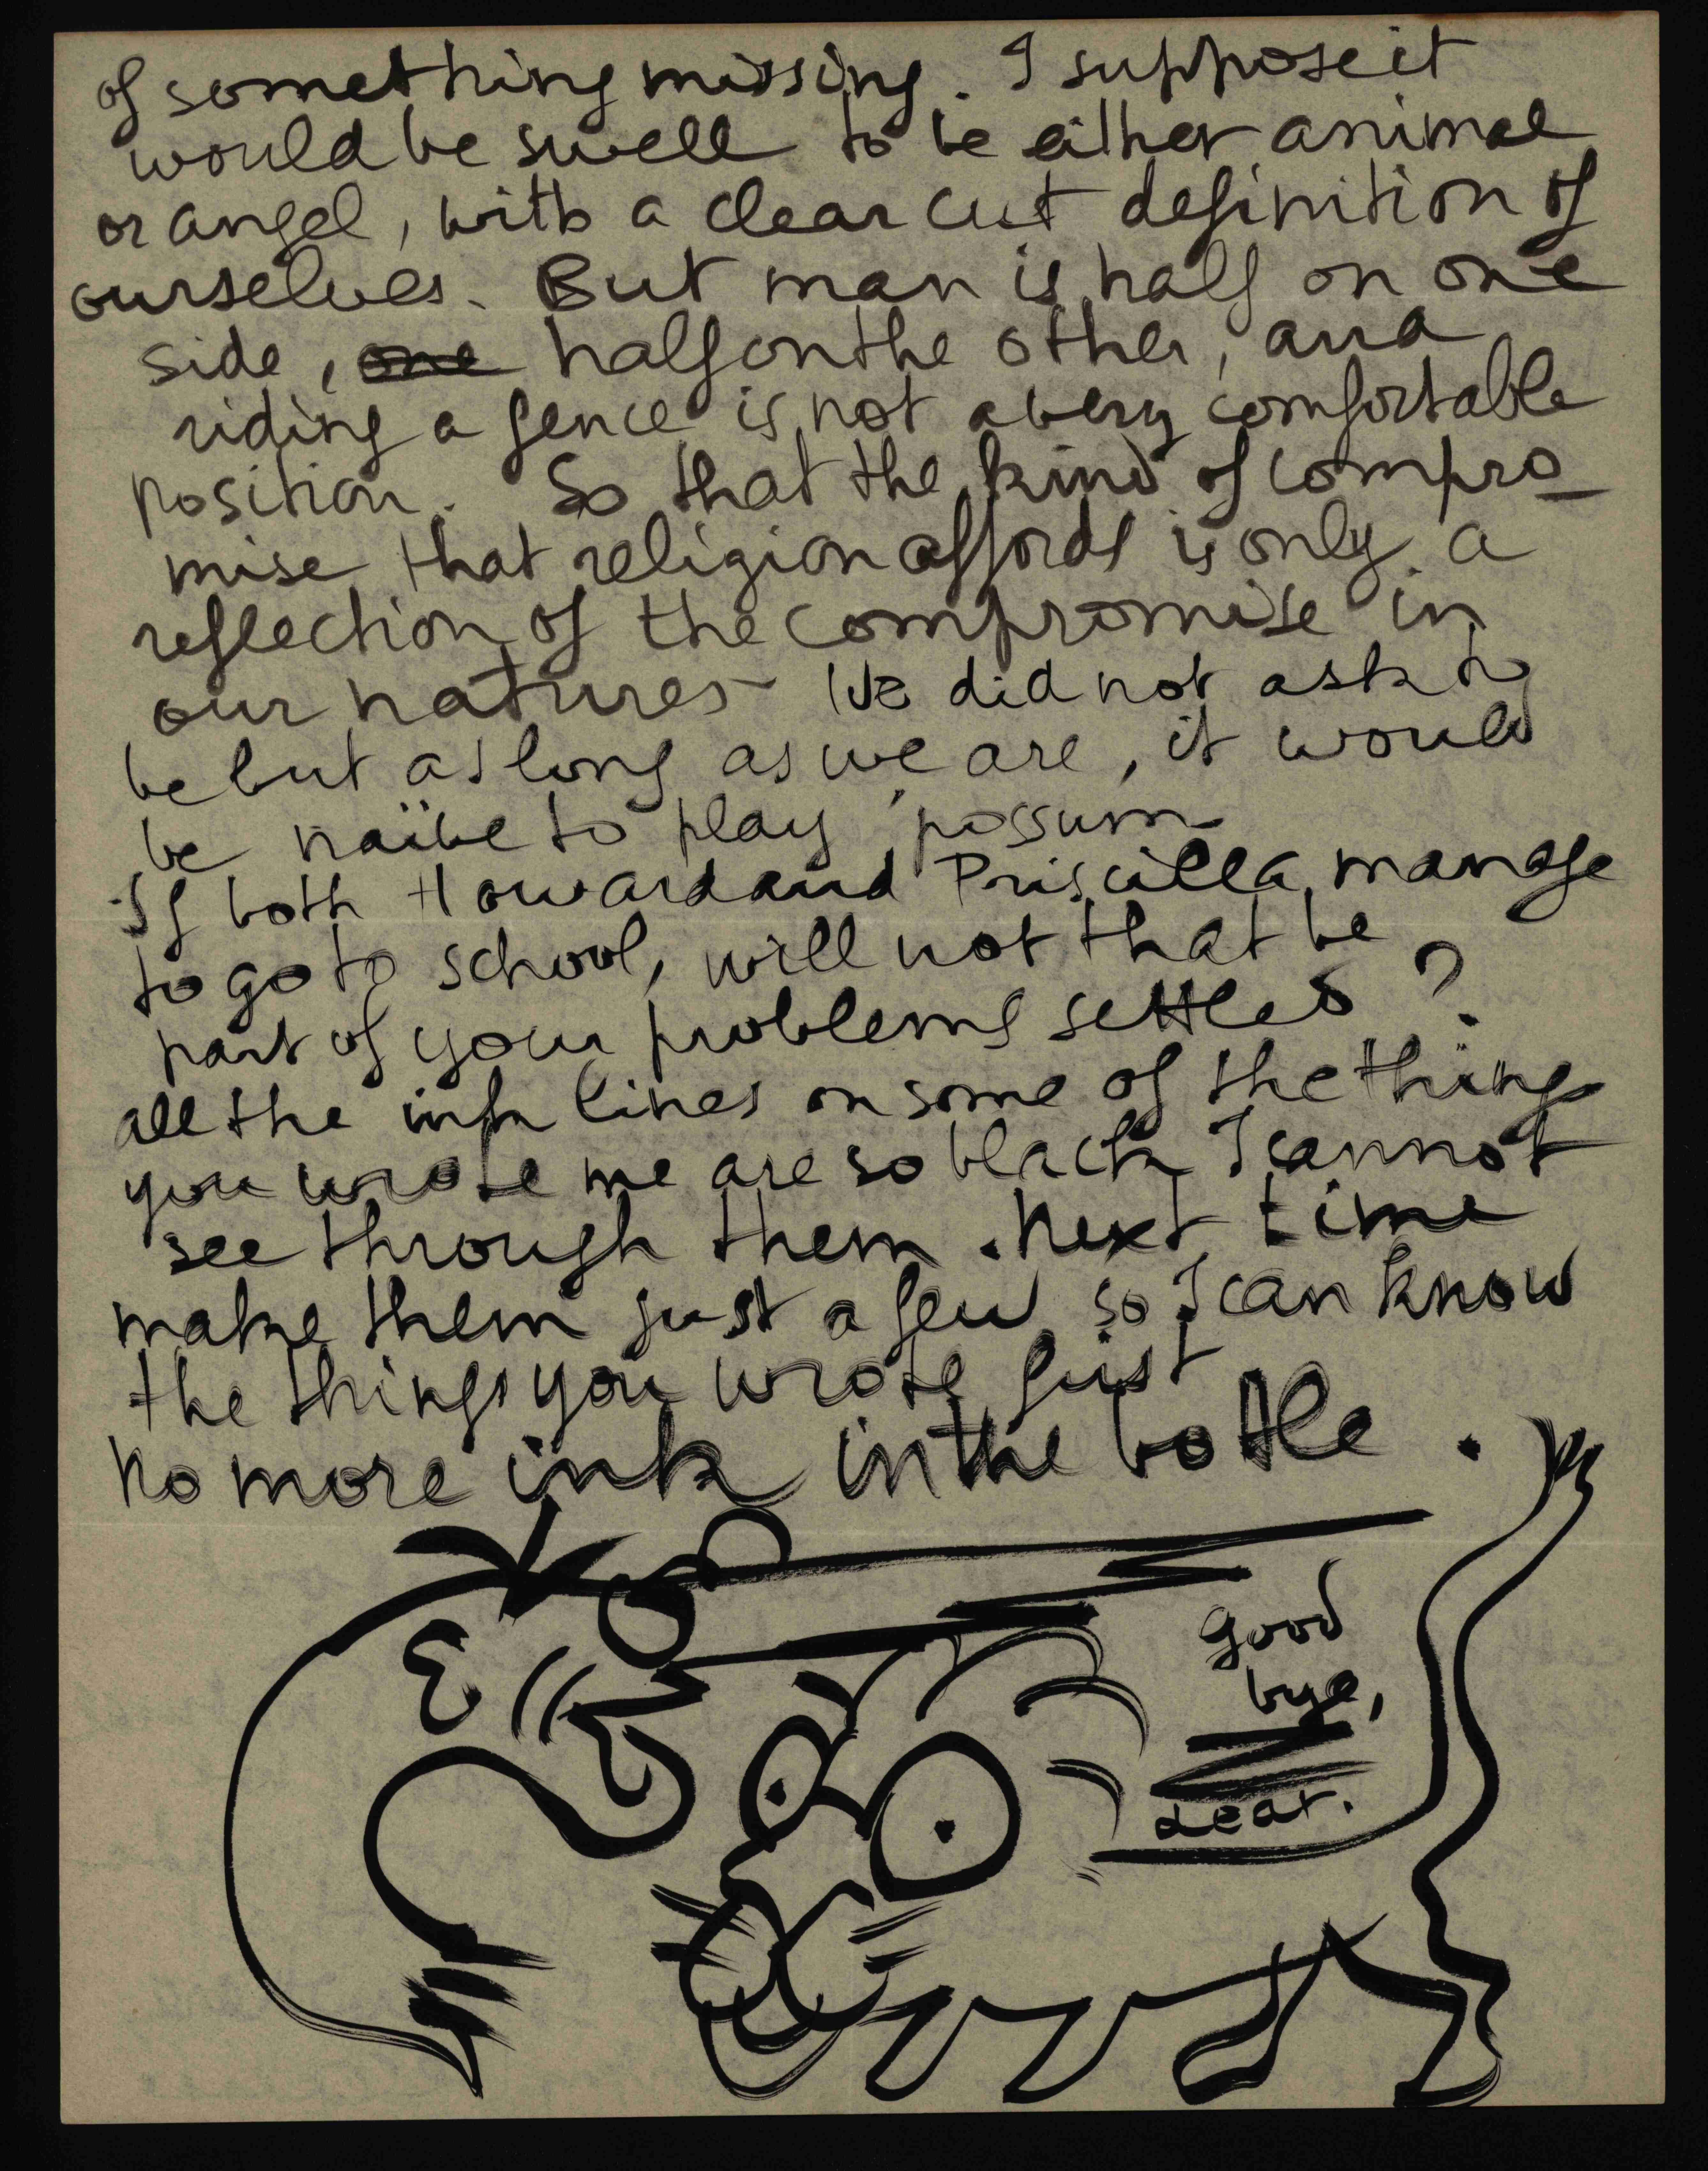 of something missing. I suppose it
would be swell to be either animal
or angel, with a clear cut definition of
ourselves. But man is half on one
side, one half on the other, and
riding a fence is not a very comfortable
position. So that the kind of compro-
mise that religion affords is only a
reflection of the compromise in
our natures - We did not ask to
be but as long as we are, it would
be naïve to play 'possum
If both Howard and Priscilla manage
to go to school, will not that be
part of your problems settled ?
all the ink lines on some of the things
you wrote me are so black I cannot
see through them. Next time
make them just a few so I can know
the things you wrote first
No more ink in the bottle .
good
bye,
dear.